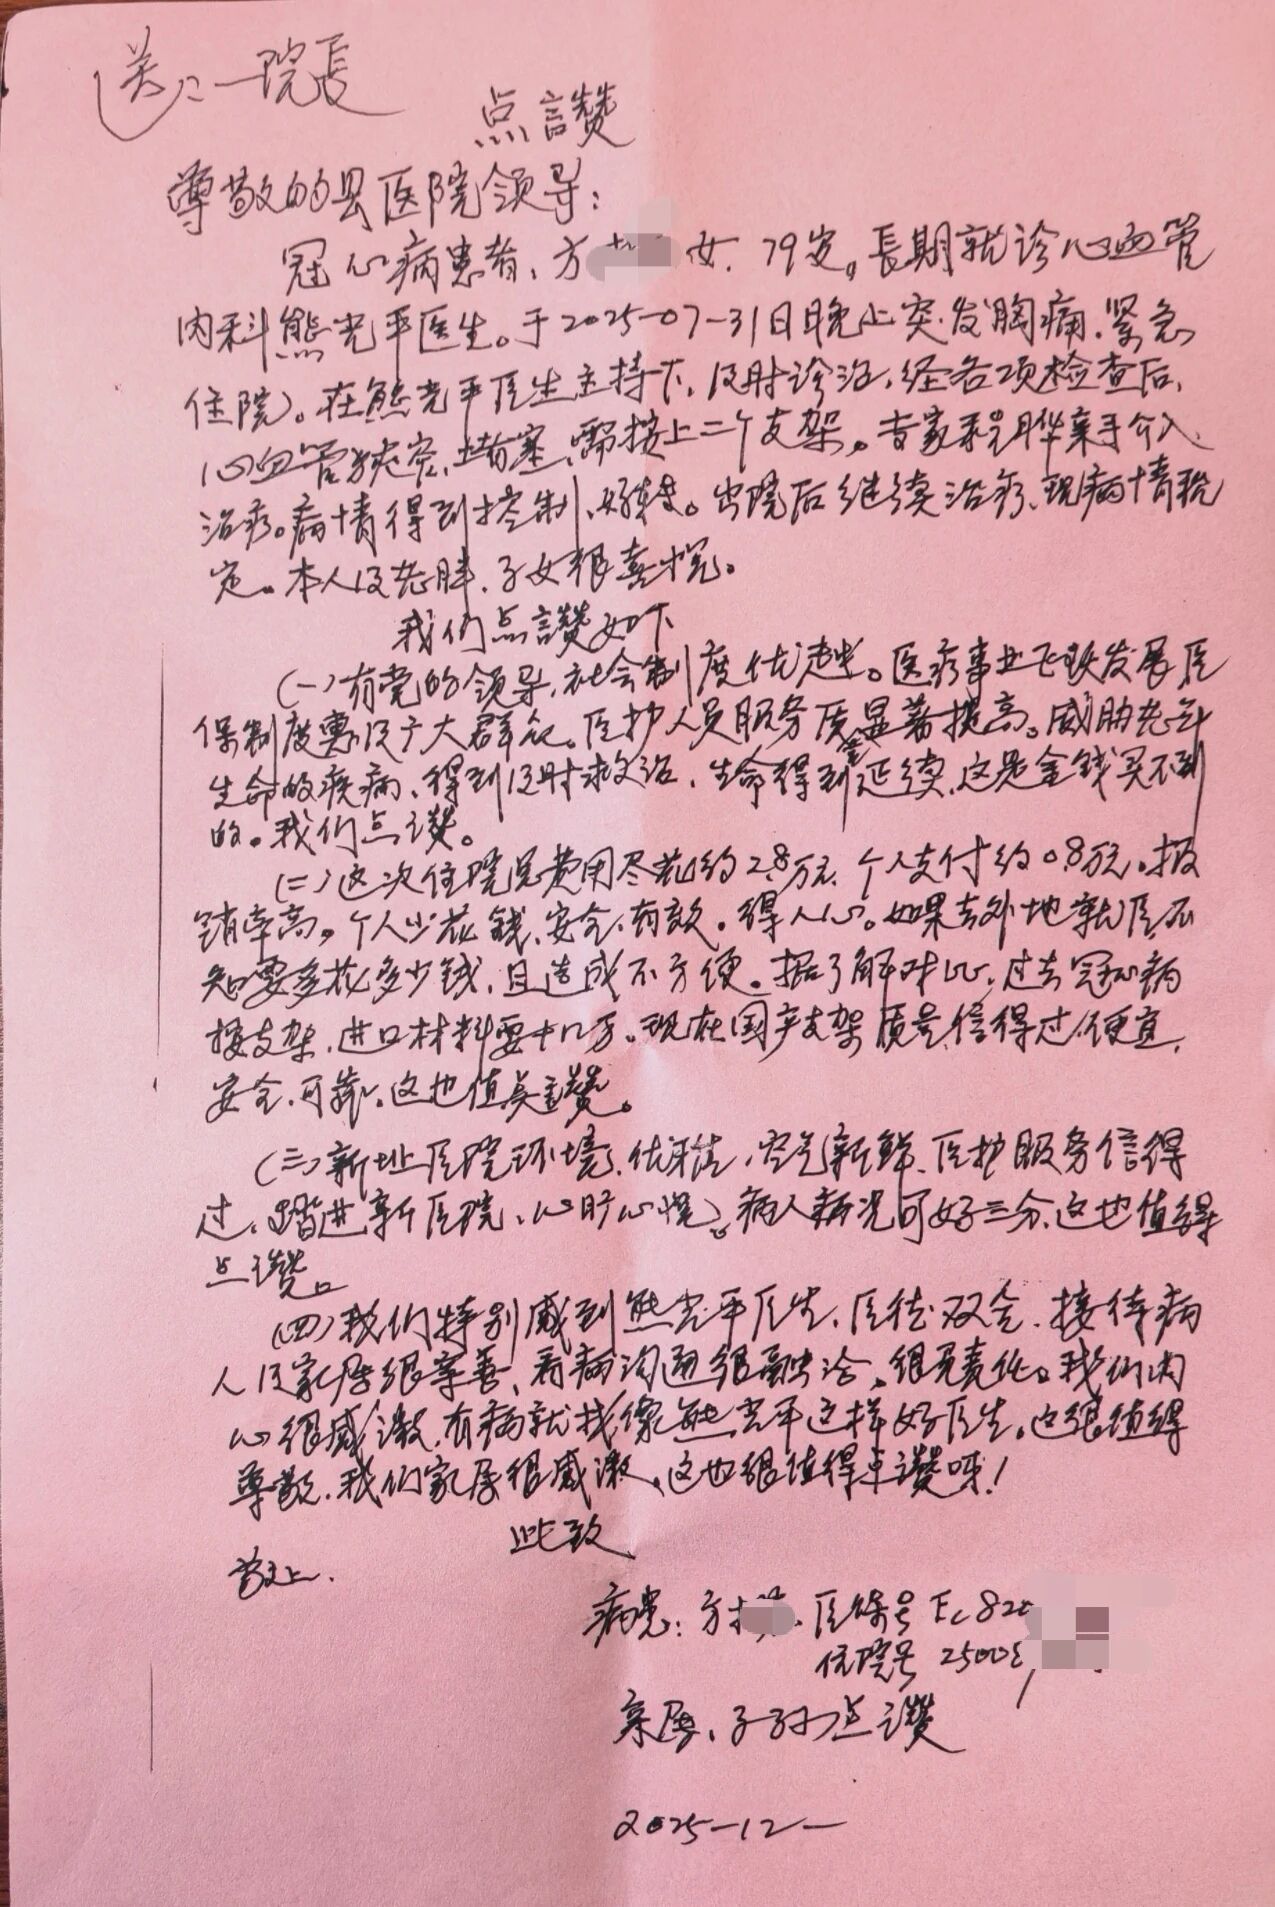 送：一院長
点讃
尊敬的县医院领导：
冠心病患者、方 女、79岁。長期就诊心血管
内科熊光平医生。于2025-07-31日晚上突发胸痛、紧急
住院。在熊光平医生主持下，及时诊治，经各项检查后，
心血管狭窄、堵塞、需接上二个支架。专家 亲手介入
治疗。病情得到控制、好转。出院后继续治疗、现病情稳
定。本人及老伴、子女很喜悦。
我们点讃如下
(一)有党的领导，社会制度优越。医疗事业飞跃发展医
保制度惠及广大群众。医护人员服务质量显著提高。威胁老年
生命的疾病、得到及时救治，生命得到延续，这是金钱买不到
的。我们点讃。
(二)这次住院总费用尽花约2.8万元、个人支付约0.8万元。报
销率高。个人少花钱、安全、有效。得人心。如果去外地就医不
知要多花多少钱，且造成不方便。据了解对比，过去冠心病
接支架，进口材料要十几万。现在国产支架质量信得过、便宜、
安全、可靠。这也值点讃。
(三)新址医院环境、优雅，空气新鲜、医护服务信得
过、踏进新医院、心旷心悦。病人病况可好三分、这也值得
点讃。
(四)我们特别感到熊光平医生、医德双全、接待病
人及家属很亲善、看病沟通很融洽。很负责任。我们内
心很感激，有病就找像熊光平这样好医生。这很值得
尊敬、我们家属很感激。这也很值得点讃呀！
此致
敬上.
病患：方 、医保号 Ec820
住院号 25008
亲属、子孙 点讃
2025-12-